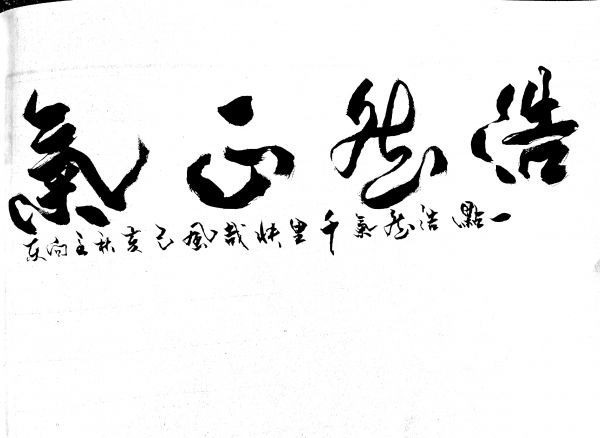 浩然正氣
一點浩然氣千里快哉風己亥秋王向東